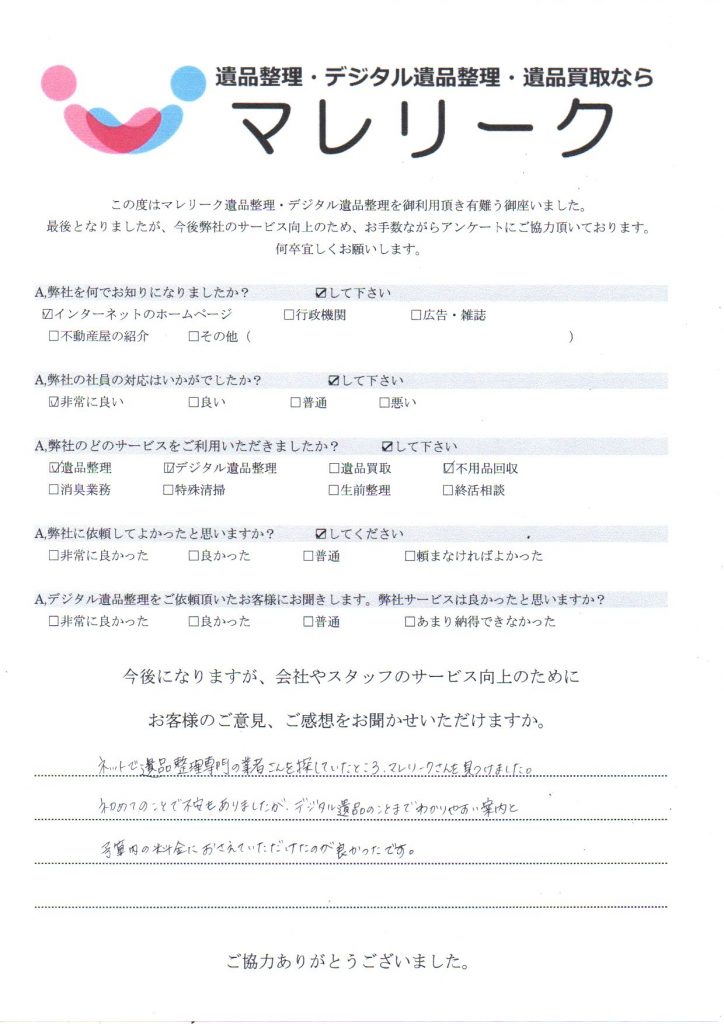 遺品整理・デジタル遺品整理・遺品買取なら
マレリーク
この度はマレリーク遺品整理・デジタル遺品整理を御利用頂き有難う御座いました。
最後となりましたが、今後弊社のサービス向上のため、お手数ながらアンケートにご協力頂いております。
何卒宜しくお願いします。
A,弊社を何でお知りになりましたか？ ☑して下さい
☑インターネットのホームページ □行政機関 □広告・雑誌
□不動産屋の紹介 □その他（ ）
A,弊社の社員の対応はいかがでしたか？ ☑して下さい
☑非常に良い □良い □普通 □悪い
A,弊社のどのサービスをご利用いただきましたか？ ☑して下さい
☑遺品整理 ☑デジタル遺品整理 □遺品買取 ☑不用品回収
□消臭業務 □特殊清掃 □生前整理 □終活相談
A,弊社に依頼してよかったと思いますか？ ☑してください
□非常に良かった □良かった □普通 □頼まなければよかった
A,デジタル遺品整理をご依頼頂いたお客様にお聞きします。弊社サービスは良かったと思いますか？
□非常に良かった □良かった □普通 □あまり納得できなかった
今後になりますが、会社やスタッフのサービス向上のために
お客様のご意見、ご感想をお聞かせいただけますか。
ネットで遺品整理専門の業者さんを探していたところ、マレリークさんを見つけました。
初めてのことで不安もありましたが、デジタル遺品のことまでわかりやすい案内と
予算内の料金におさえていただけたのが良かったです。
ご協力ありがとうございました。